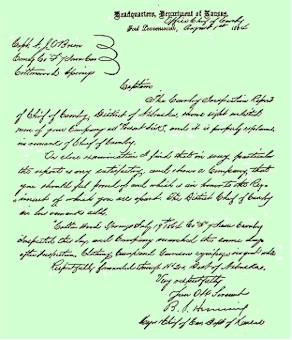 Headquarters, Department of Kansas,
Office Chief of Cavalry
Fort Leavenworth, August 1st 1864
Capt. N. J. O'Brien
Comdg Co. F 7th Iowa Cav
Cottonwood Springs
Captain
The Cavalry Inspection Report
of Chief of Cavalry, District of Nebraska, shows eight enlisted
men of your Company as "Present sick", and it is properly explained
in remarks of Chief of Cavalry.
On close examination I find that in every particular
the report is very satisfactory, and shows a Company, that
you should feel proud of and which is an honor to the Regi-
iment of which you are a part. The District Chief of Cavalry
in his remarks adds.
Cotton Wood Springs July 19th 1864 Co. F 7th Iowa Cavalry
inspected this day, and Company marched the same day
after inspection. Clothing, Camp and Garrison equipage in good order
Respectfully forwarded through Hd Qrs. Dist of Nebraska.
Very respectfully
Your Obt Servant
B. S. Henning
Major & Chief of Cav. Dept of Kansas